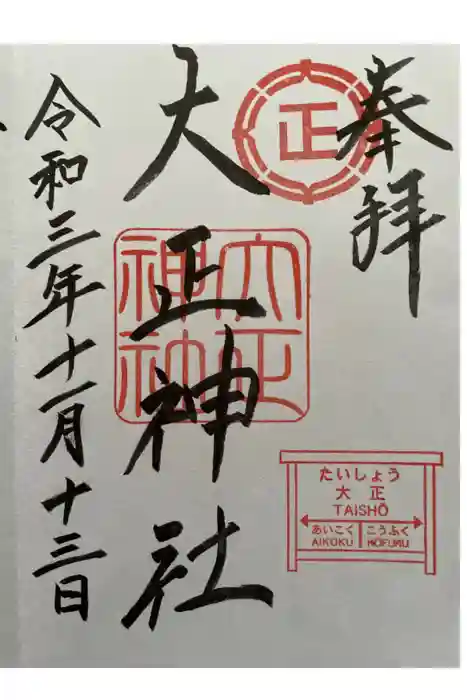 奉拝
正
大正神社
大正神社
たいしょう
大正
TAISHŌ
あいこく こうふく
AIKOKU KŌFUKU
令和三年十一月十三日